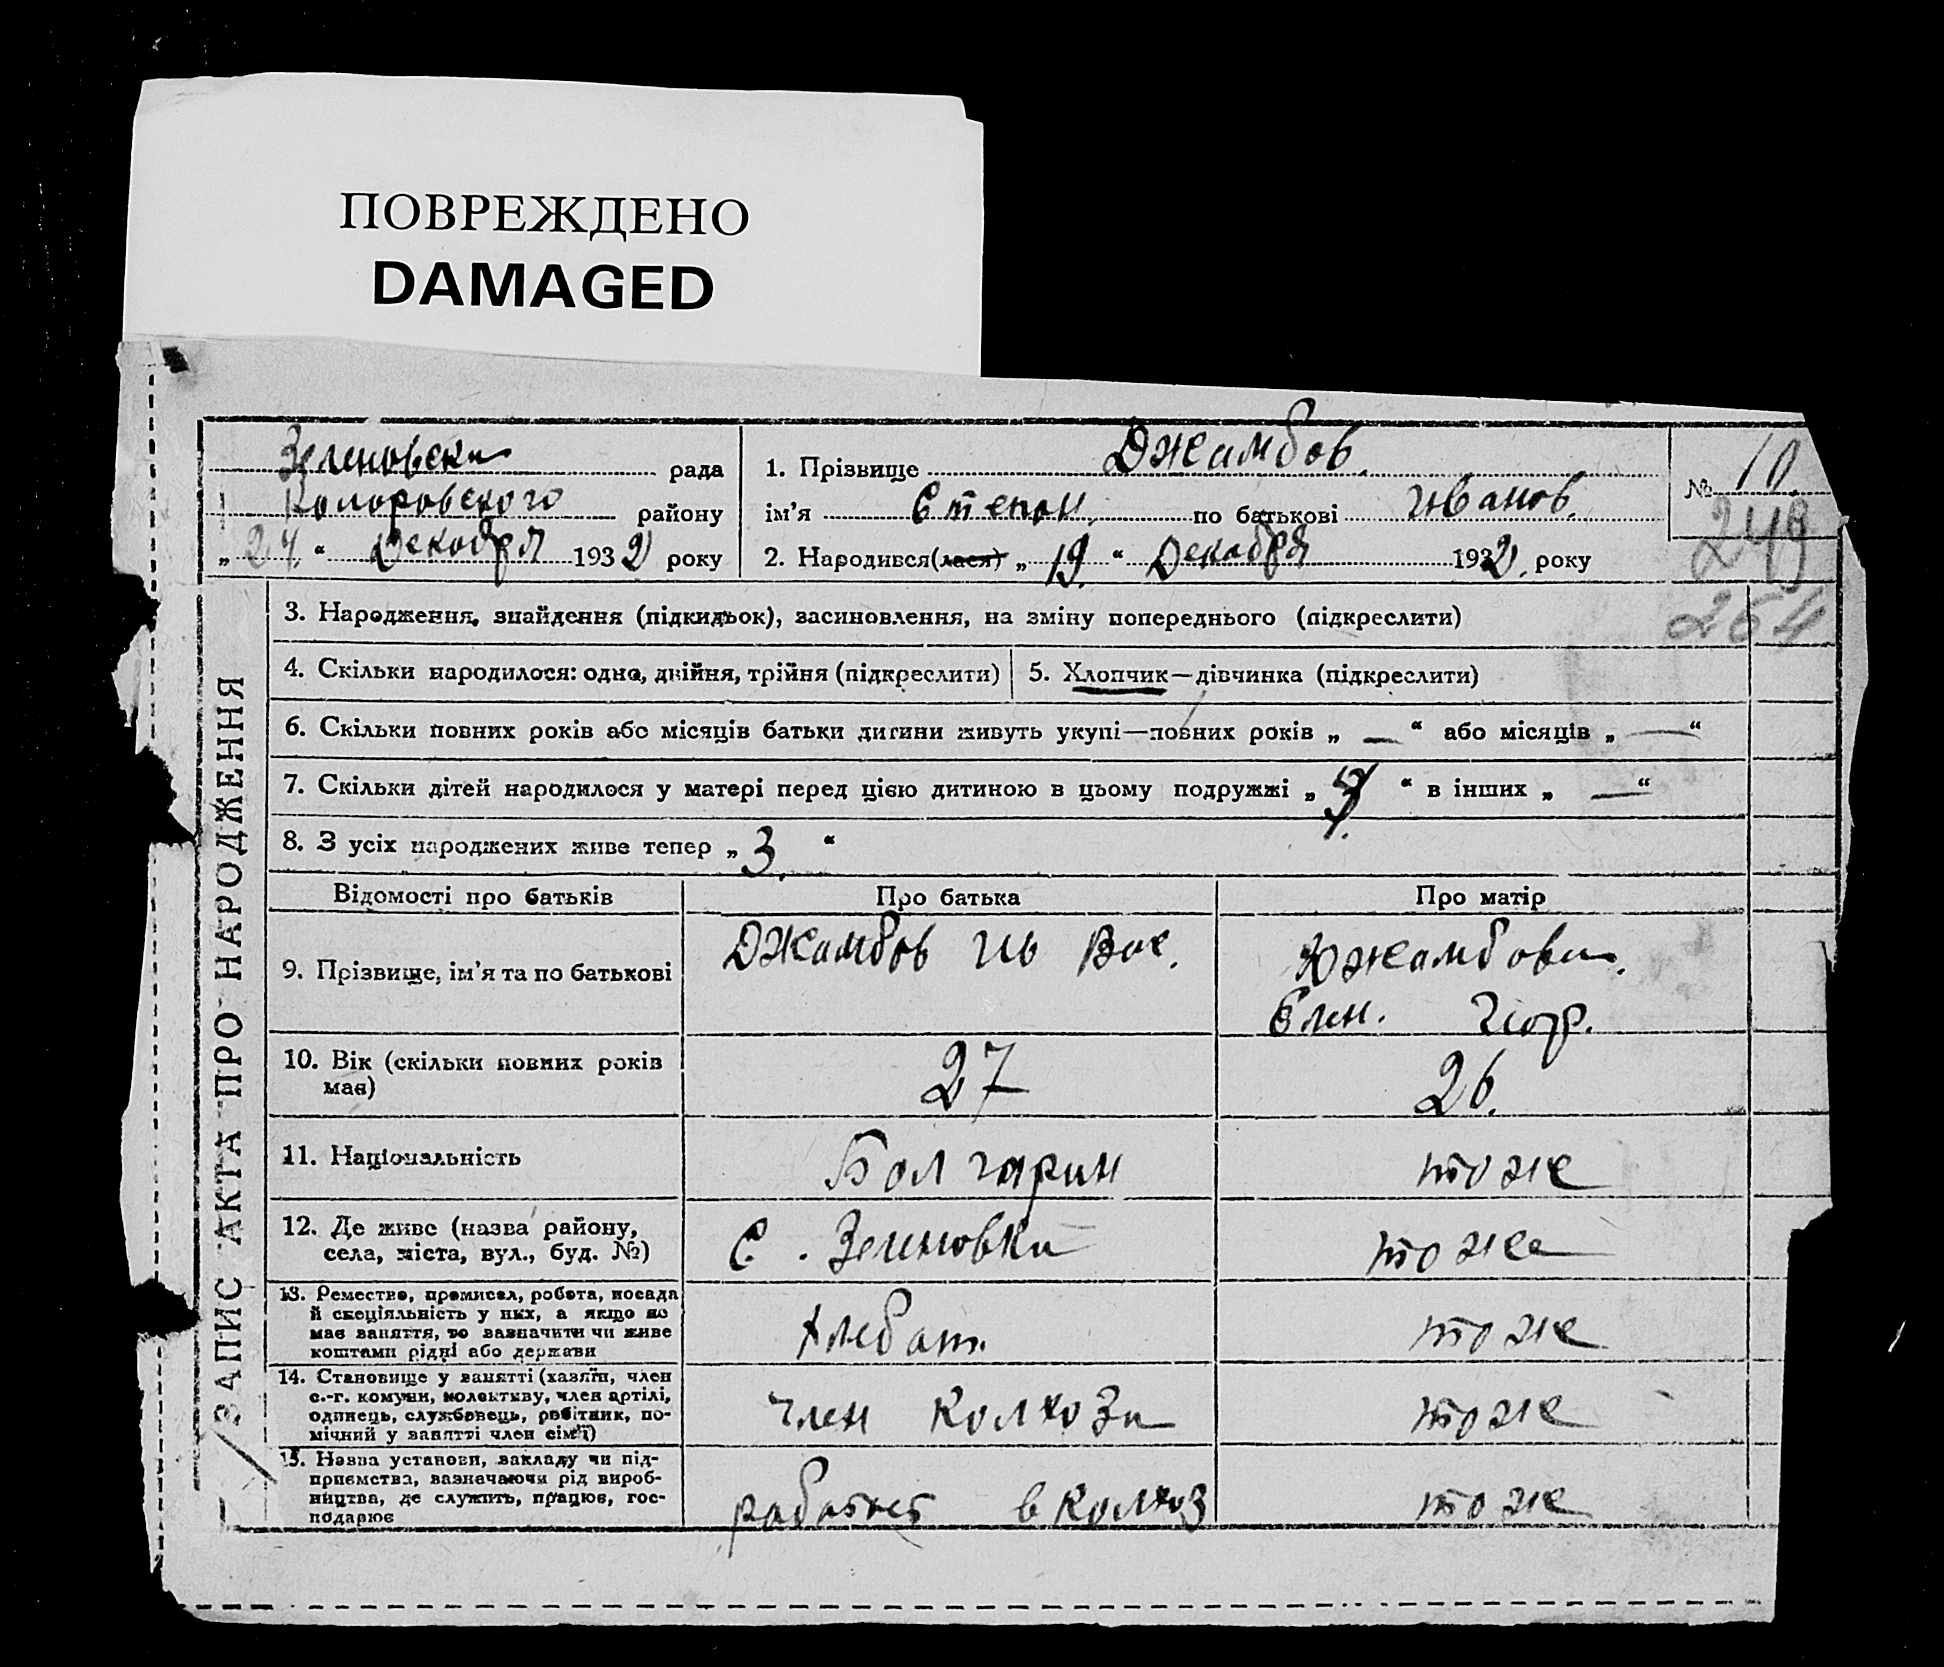 ПОВРЕЖДЕНО
DAMAGED
Зеленовски рада
Коларовского району
„ 24. “ Декобря 1932 року
1. Прізвище Джамбов.
ім'я Степон по батькові Иванов.
2. Народився(лася) „ 19. “ Декабря 1932. року
№ 10.
249
264
ЗАПИС АКТА ПРО НАРОДЖЕННЯ
3. Народження, знайдення (підкидьок), засиновлення, на зміну попереднього (підкреслити)
4. Скільки народилося: одно, двійня, трійня (підкреслити)
5. Хлопчик—дівчинка (підкреслити)
6. Скільки повних років або місяців батьки дитини живуть укупі—повних років „ — “ або місяців „ — “
7. Скільки дітей народилося у матері перед цією дитиною в цьому подружжі „ “ в інших „ — “
8. З усіх народжених живе тепер „ 3. “
Відомості про батьків
Про батька
Про матір
9. Прізвище, ім'я та по батькові
Джамбов Ив Вас.
Джамбова.
Елен. Геор.
10. Вік (скільки повних років
має)
27
26.
11. Національність
Болгарин
тоже
12. Де живе (назва району,
села, міста, вул., буд. №)
С. Зеленовка
тоже
13. Ремество, промисел, робота, посада
й спеціяльність у них, а якщо не
має заняття, то зазначити чи живе
коштами рідні або держави
хлебоп.
тоже
14. Становище у занятті (хазяїн, член
с.-г. комуни, колективу, член артілі,
одинець, службовець, робітник, по-
мічний у занятті член сім'ї)
член колхоза
тоже
15. Назва установи, закладу чи під-
приємства, зазначаючи рід вироб-
ництва, де служить, працює, гос-
подарює
работает в колхоз
тоже